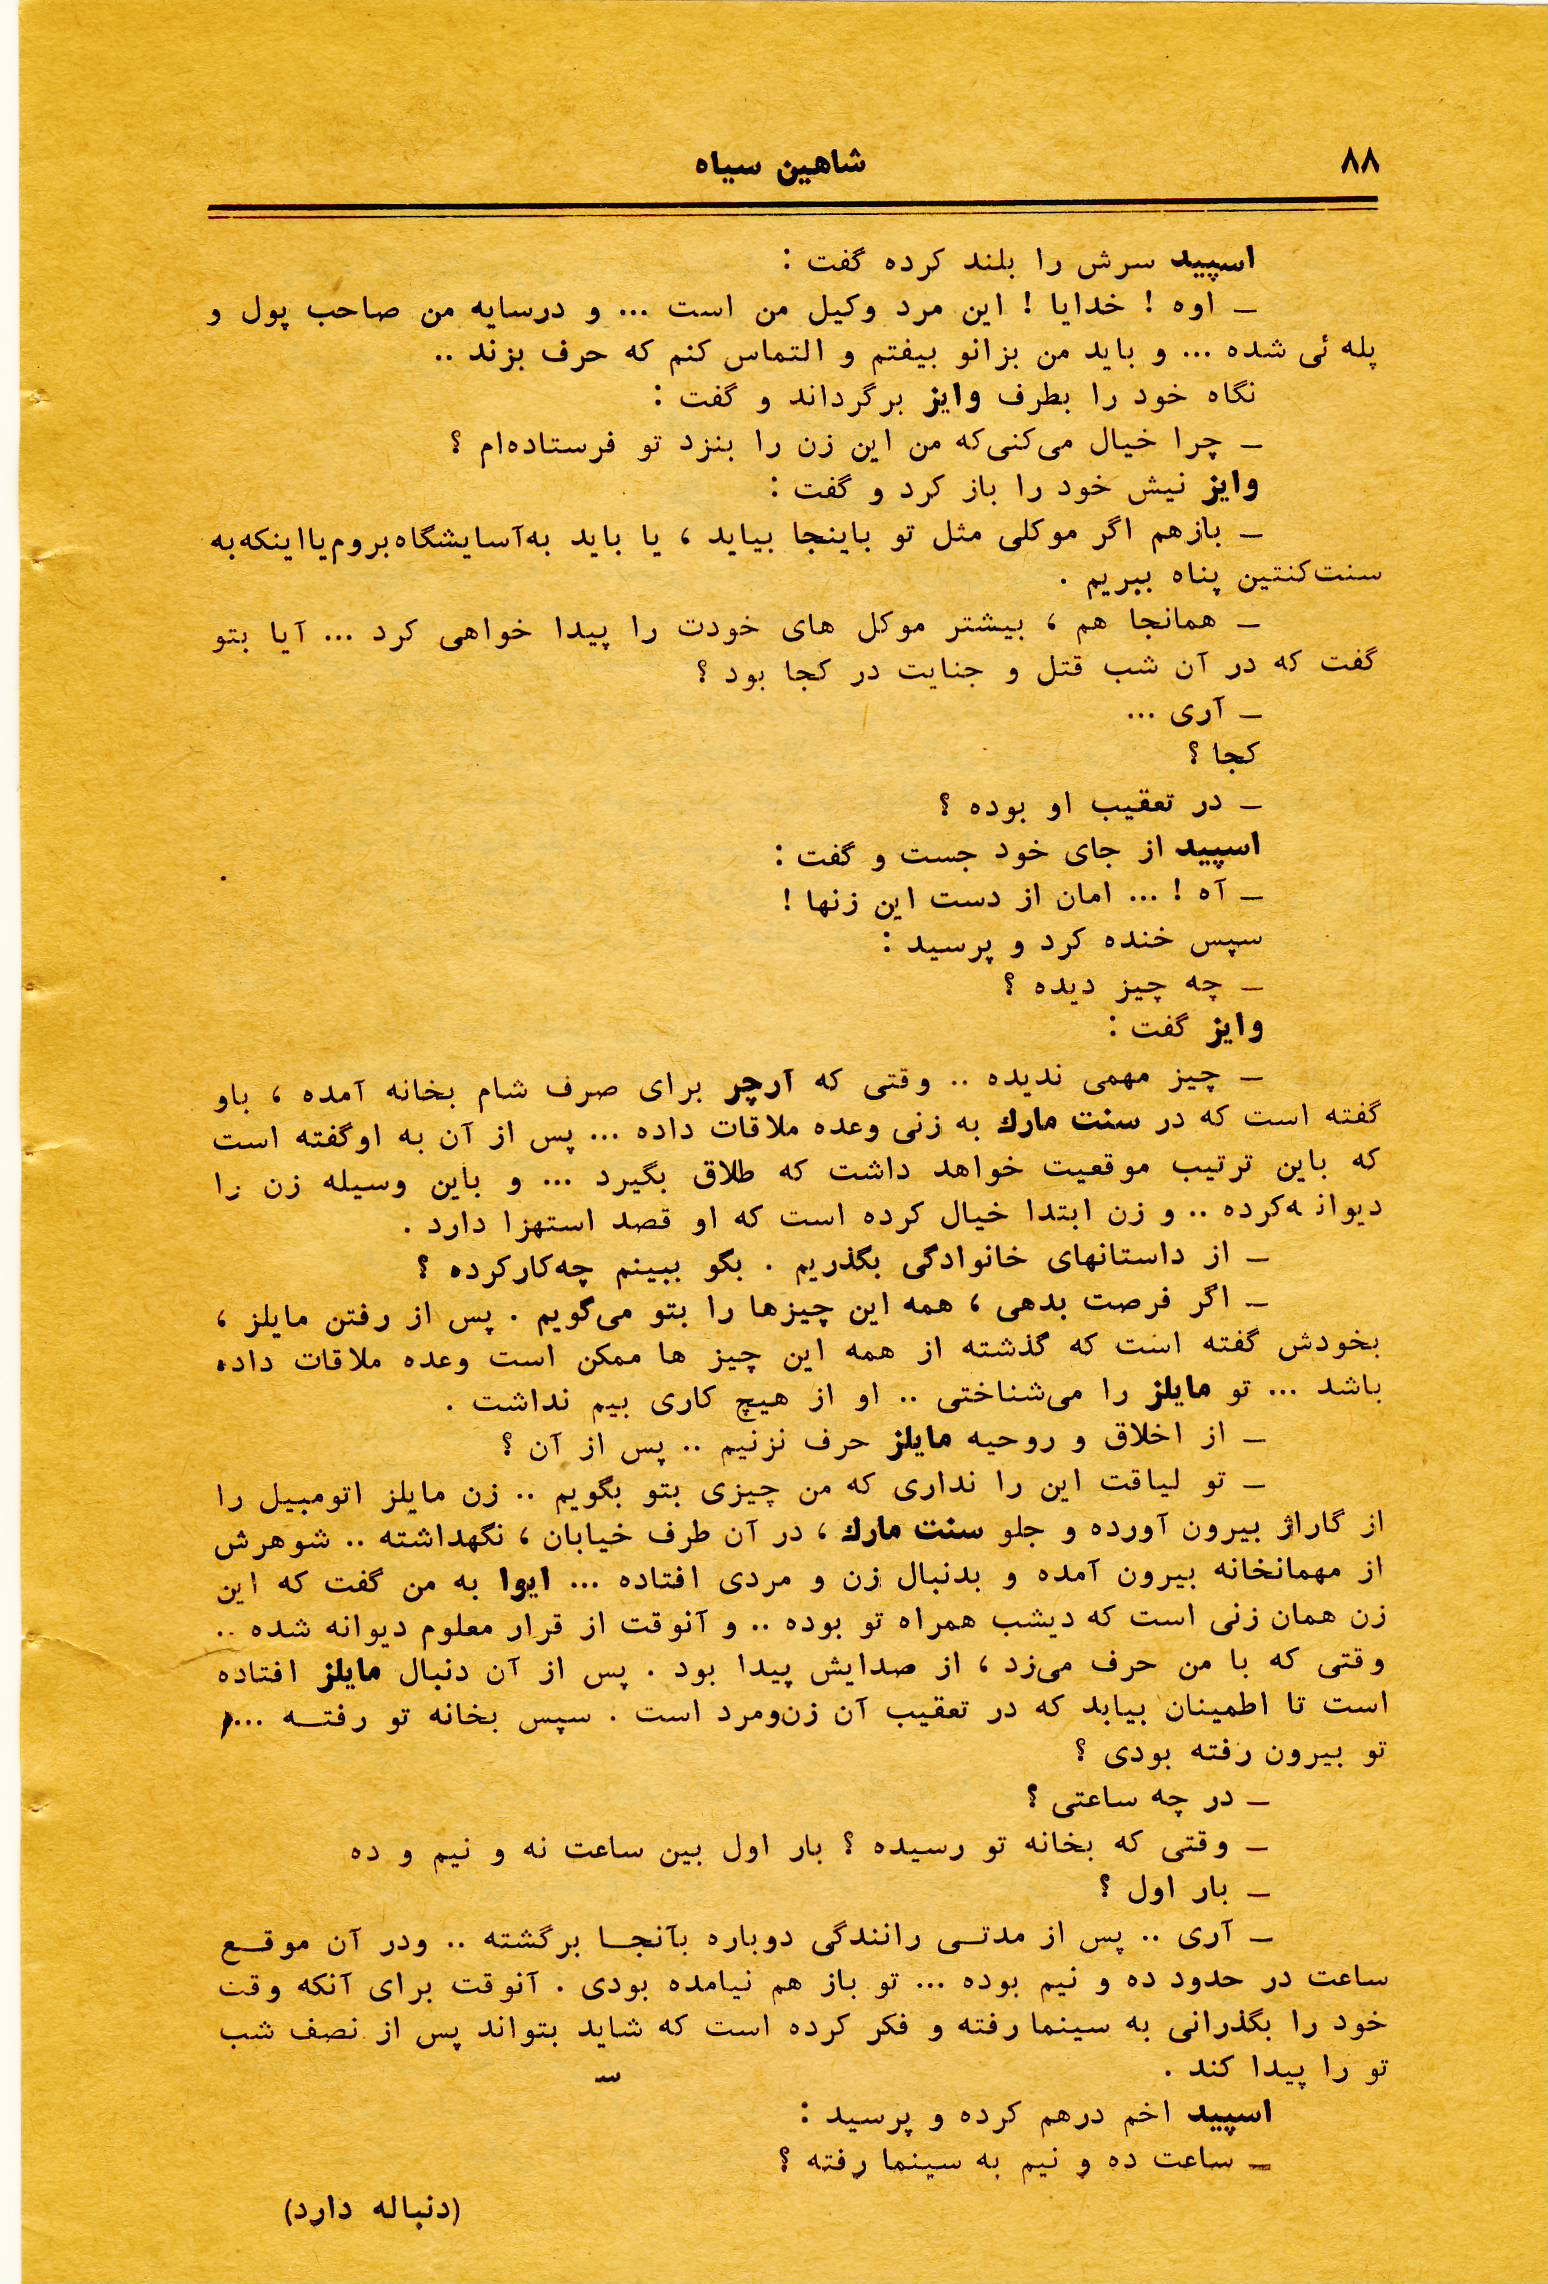 ۸۸
شاهین سیاه
اسپید سرش را بلند کرده گفت :
ـ اوه ! خدایا ! این مرد وکیل من است ... و درسایه من صاحب پول و
پله ئی شده ... و باید من بزانو بیفتم و التماس کنم که حرف بزند ..
نگاه خود را بطرف وایز برگرداند و گفت :
ـ چرا خیال می‌کنی‌که من این زن را بنزد تو فرستاده‌ام ؟
وایز نیش خود را باز کرد و گفت :
ـ بازهم اگر موکلی مثل تو باینجا بیاید ، یا باید به‌آسایشگاه‌بروم‌یااینکه‌به
سنت‌کنتین پناه ببریم .
ـ همانجا هم ، بیشتر موکل های خودت را پیدا خواهی کرد ... آیا بتو
گفت که در آن شب قتل و جنایت در کجا بود ؟
ـ آری ...
کجا ؟
ـ در تعقیب او بوده ؟
اسپید از جای خود جست و گفت :
ـ آه ! ... امان از دست این زنها !
سپس خنده کرد و پرسید :
ـ چه چیز دیده ؟
وایز گفت :
ـ چیز مهمی ندیده .. وقتی که آرچر برای صرف شام بخانه آمده ، باو
گفته است که در سنت مارك به زنی وعده ملاقات داده ... پس از آن به اوگفته است
که باین ترتیب موقعیت خواهد داشت که طلاق بگیرد ... و باین وسیله زن را
دیوانه‌کرده .. و زن ابتدا خیال کرده است که او قصد استهزا دارد .
ـ از داستانهای خانوادگی بگذریم . بگو ببینم چه‌کارکرده ؟
ـ اگر فرصت بدهی ، همه این چیزها را بتو می‌گویم . پس از رفتن مایلز ،
بخودش گفته است که گذشته از همه این چیز ها ممکن است وعده ملاقات داده
باشد ... تو مایلز را می‌شناختی .. او از هیچ کاری بیم نداشت .
ـ از اخلاق و روحیه مایلز حرف نزنیم .. پس از آن ؟
ـ تو لیاقت این را نداری که من چیزی بتو بگویم .. زن مایلز اتومبیل را
از گاراژ بیرون آورده و جلو سنت مارك ، در آن طرف خیابان ، نگهداشته .. شوهرش
از مهمانخانه بیرون آمده و بدنبال زن و مردی افتاده ... ایوا به من گفت که این
زن همان زنی است که دیشب همراه تو بوده .. و آنوقت از قرار معلوم دیوانه شده ..
وقتی که با من حرف می‌زد ، از صدایش پیدا بود . پس از آن دنبال مایلز افتاده
است تا اطمینان بیابد که در تعقیب آن زن‌ومرد است . سپس بخانه تو رفتــه ...
تو بیرون رفته بودی ؟
ـ در چه ساعتی ؟
ـ وقتی که بخانه تو رسیده ؟ بار اول بین ساعت نه و نیم و ده
ـ بار اول ؟
ـ آری .. پس از مدتــی رانندگی دوباره بآنجــا برگشته .. ودر آن موقــع
ساعت در حدود ده و نیم بوده ... تو باز هم نیامده بودی . آنوقت برای آنکه وقت
خود را بگذرانی به سینما رفته و فکر کرده است که شاید بتواند پس از نصف شب
تو را پیدا کند .
اسپید اخم درهم کرده و پرسید :
ـ ساعت ده و نیم به سینما رفته ؟
(دنباله دارد)